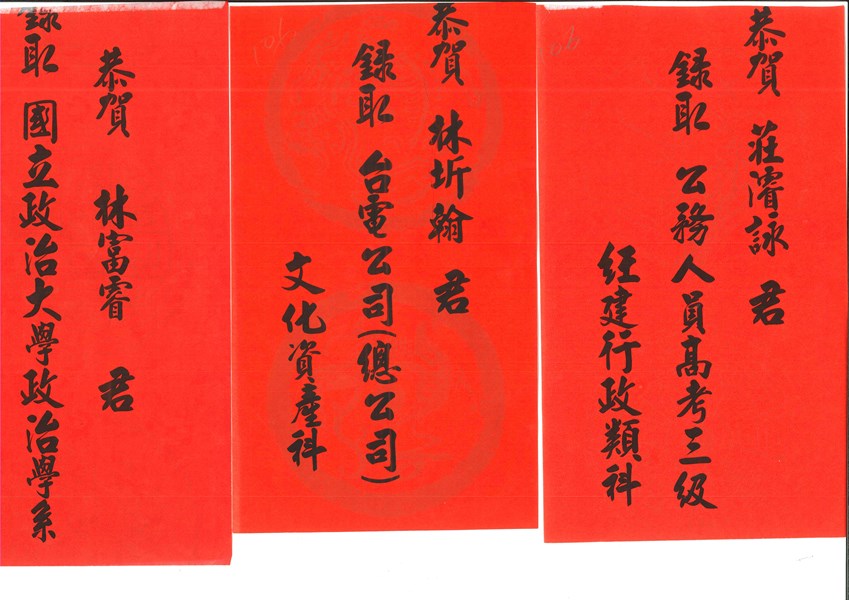 恭賀 莊濬詠 君
錄取 公務人員高考三級
經建行政類科
恭賀 林圻翰 君
錄取 台電公司(總公司)
文化資產科
恭賀 林富睿 君
錄取 國立政治大學政治學系